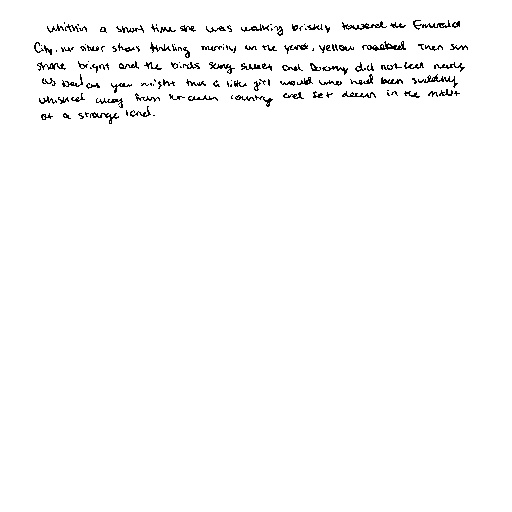 Whithin a short time she was walking briskly toward the Emerald
City, her silver shoes tinkling merrily on the yellow roadbed. Then sun
shone bright and the birds sang sweet and Dorothy did not feel nearly
as bad as you might think a little girl would who had been suddenly
whisked away from her own country and set down in the midst
of a strange land.